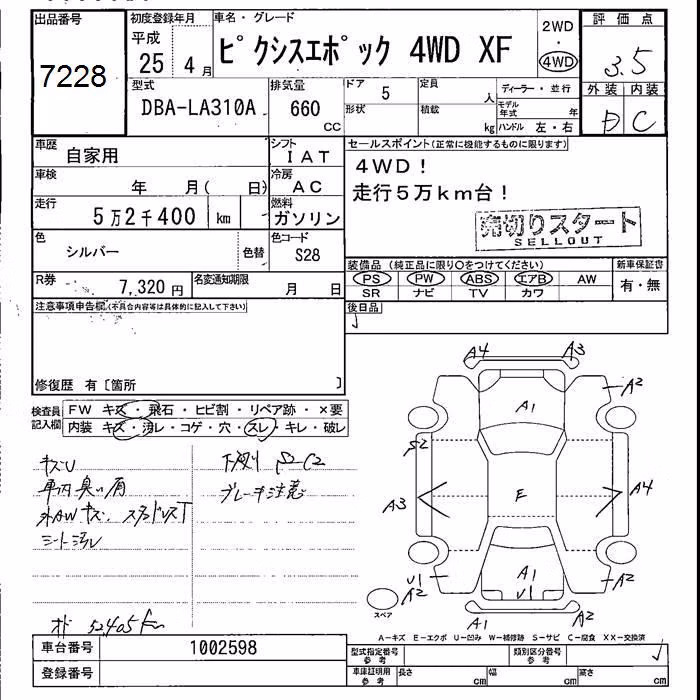 出品番号 初度登録年月 車名・グレード 評価点
7228 平成 25 4月 ピクシスエポック 4WD XF 2WD・4WD 3.5
型式 排気量 ドア 5 定員 人 ディーラー・並行 外装 内装
DBA-LA310A 660 cc 形状 積載 kg モデル年式 年 C
ハンドル 左・右
車歴 自家用 シフト IAT セールスポイント(正常に機能するものに限ります)
車検 年 月( 日) 冷房 AC 4WD!
走行 5万2千400 km 燃料 ガソリン 走行5万km台!
売切りスタート
SELLOUT
色 シルバー 色替 色コード S28
装備品(純正品に限り○をつけてください) 新車保証書
PS PW ABS エアB AW 有・無
SR ナビ TV カワ
R券 7,320円 名変通知期限 月 日
後日品
注意事項申告欄(不具合内容等は具体的に記入して下さい)
修復歴 有〔箇所 〕
検査員記入欄 FW キズ・飛石・ヒビ割・リペア跡・×要
内装 キズ・汚レ・コゲ・穴・スレ・キレ・破レ
キズU 下廻り S-C2
車内臭い有 ブレーキ注意
外AWキズ、スタッドレスT
シート汚レ
オド 52405km
A4 A3
A1 A2
S2
A3 E A4
U1 A2 A1 U1 A2
A1 A2
スペア
A-キズ E-エクボ U-凹み W-補修跡 S-サビ C-腐食 XX-交換済
車台番号 1002598 型式指定番号 参考 類別区分番号 参考
登録番号 車庫証明用 参考 長さ cm 幅 cm 高さ cm